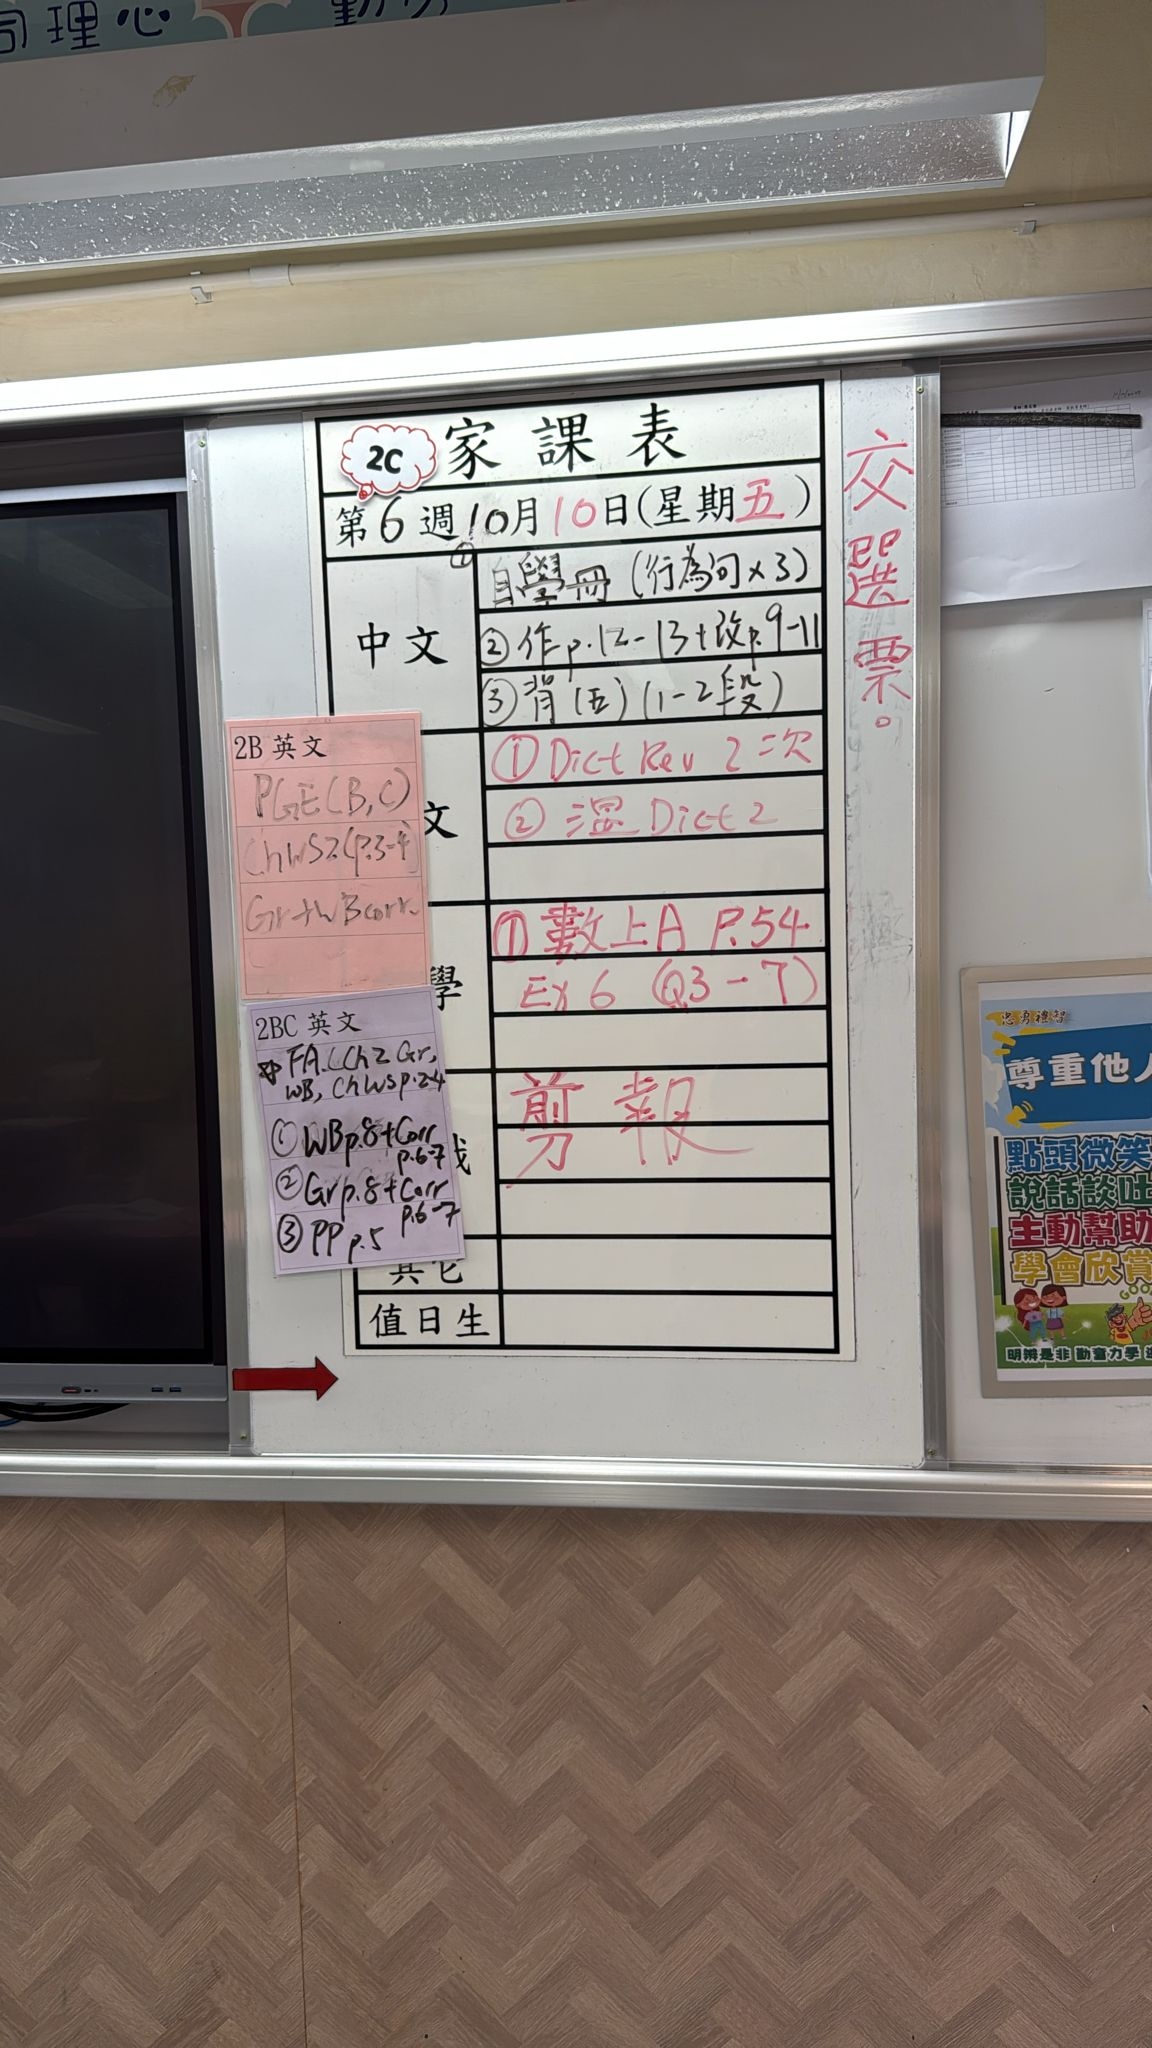 同理心
2C 家課表
第6週10月10日(星期五)
中文
① 自學冊 (行為句×3)
② 作p.12-13+改p.9-11
③ 背(五)(1-2段)
文
① Dict Rev 2 二次
② 溫 Dict 2
學
① 數上A P.54
Ex 6 (Q3-7)
剪報
其它
值日生
交選票。
2B 英文
PGE(B,C)
ChWS2(p.3-4)
Gr+WBcorr.
2BC 英文
FA.(Ch2 Gr,
WB, ChWSp.2-4
① WBp.8+Corr
p.6-7
② Grp.8+Corr
p.6-7
③ PP p.5
忠勇禮智
尊重他人
點頭微笑
說話談吐
主動幫助
學會欣賞
GOOD
明辨是非 勤奮力學